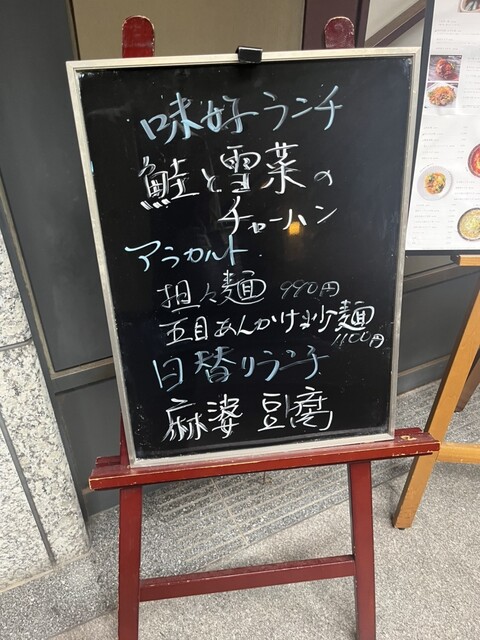 味好ランチ
鮭と雪菜の
チャーハン
アラカルト
担々麺 990円
五目あんかけ炒麺
1100円
日替りランチ
麻婆豆腐